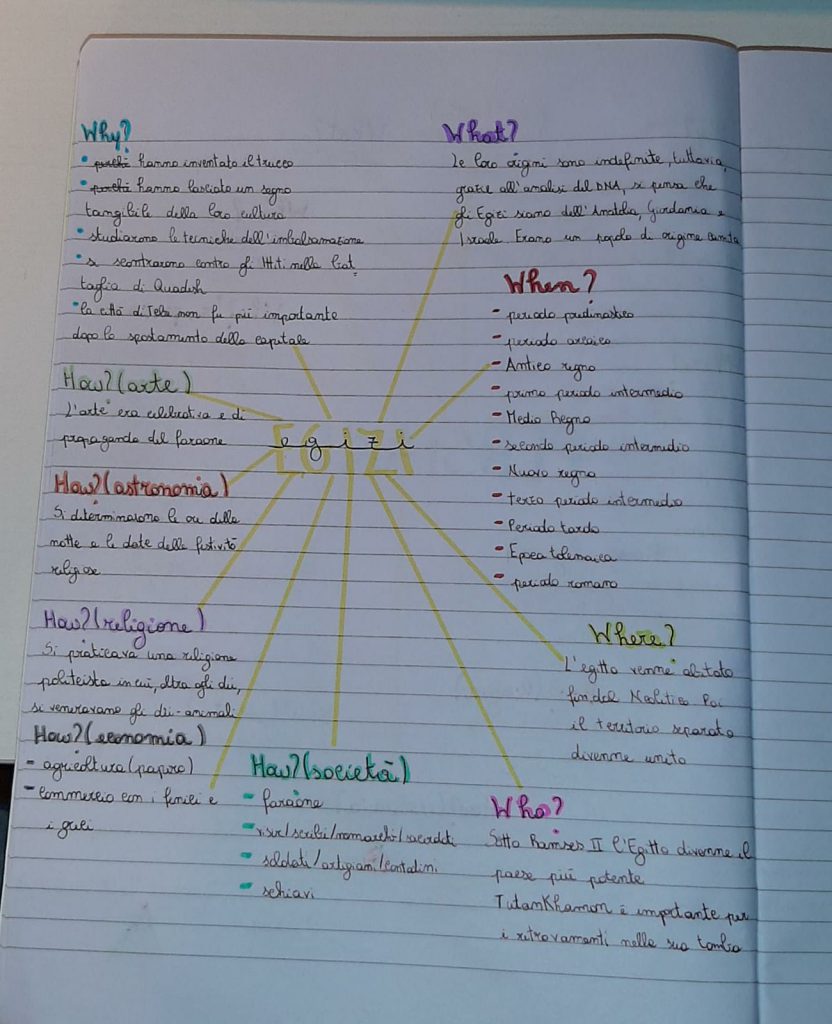 Why?
• perché hanno inventato il trucco
• perché hanno lasciato un segno
tangibile della loro cultura
• studiarono le tecniche dell'imbalsamazione
• si scontrarono contro gli Ittiti nella Bat,
taglia di Quadesh
• la città di Tebe non fu più importante
dopo lo spostamento della capitale
How? (arte)
L'arte era celebrativa e di
propaganda del faraone
How? (astronomia)
Si determinarono le ore della
notte e le date delle festività
religiose
How? (religione)
Si praticava una religione
politeista in cui, oltre gli dii,
si veneravano gli dii-animali
How? (economia)
- agricoltura (papiro)
- commercio con i fenici e
i greci
egizi
What?
Le loro origini sono indefinite, tuttavia,
grazie all'analisi del DNA, si pensa che
gli Egizi siano dell'Anatolia, Giordania e
Israele. Erano un popolo di origine camita
When?
- periodo predinastico
- periodo arcaico
- Antico regno
- primo periodo intermedio
- Medio Regno
- secondo periodo intermedio
- Nuovo regno
- terzo periodo intermedio
- Periodo tardo
- Epoca tolemaica
- periodo romano
Where?
L'egitto venne abitato
fin dal Neolitico Poi
il territorio separato
divenne unito
How? (società)
- faraone
- visir/scribi/nomarchi/sacerdoti
- soldati/artigiani/contadini
- schiavi
Who?
Sotto Ramses II l'Egitto divenne il
paese più potente
TutanKhamon è importante per
i ritrovamenti nella sua tomba